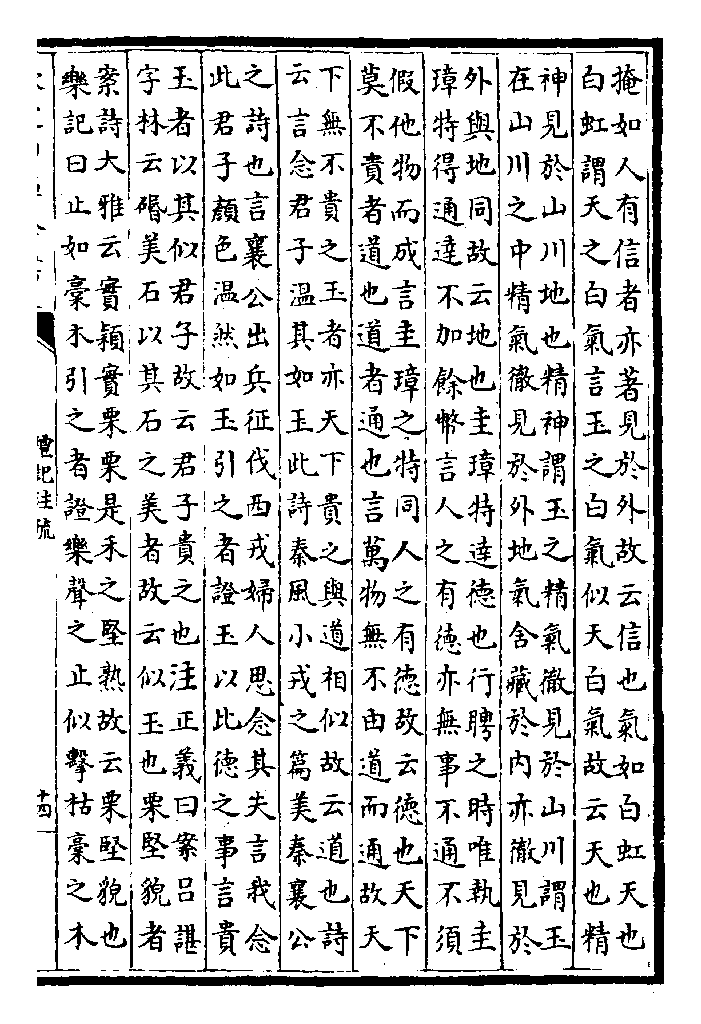 掩如人有信者亦著見於外故云信也氣如白虹天也
白虹謂天之白氣言玉之白氣似天白氣故云天也精
神見於山川地也精神謂玉之精氣徹見於山川謂玉
在山川之中精氣徹見於外地氣含藏於內亦徹見於
外與地同故云地也圭璋特達德也行聘之時唯執圭
璋特得通達不加餘幣言人之有德亦無事不通不須
假他物而成言圭璋之特同人之有德故云德也天下
莫不貴者道也道者通也言萬物無不由道而通故天
下無不貴之玉者亦天下貴之與道相似故云道也詩
云言念君子溫其如玉此詩秦風小戎之篇美秦襄公
之詩也言襄公出兵征伐西戎婦人思念其夫言我念
此君子顏色溫然如玉引之者證玉以比德之事言貴
玉者以其似君子故云君子貴之也注正義曰案呂諶
字林云碈美石以其石之美者故云似玉也栗堅貌者
案詩大雅云實穎實栗栗是禾之堅熟故云栗堅貌也
樂記曰止如槀木引之者證樂聲之止似擊枯槀之木
禮記注疏
十四